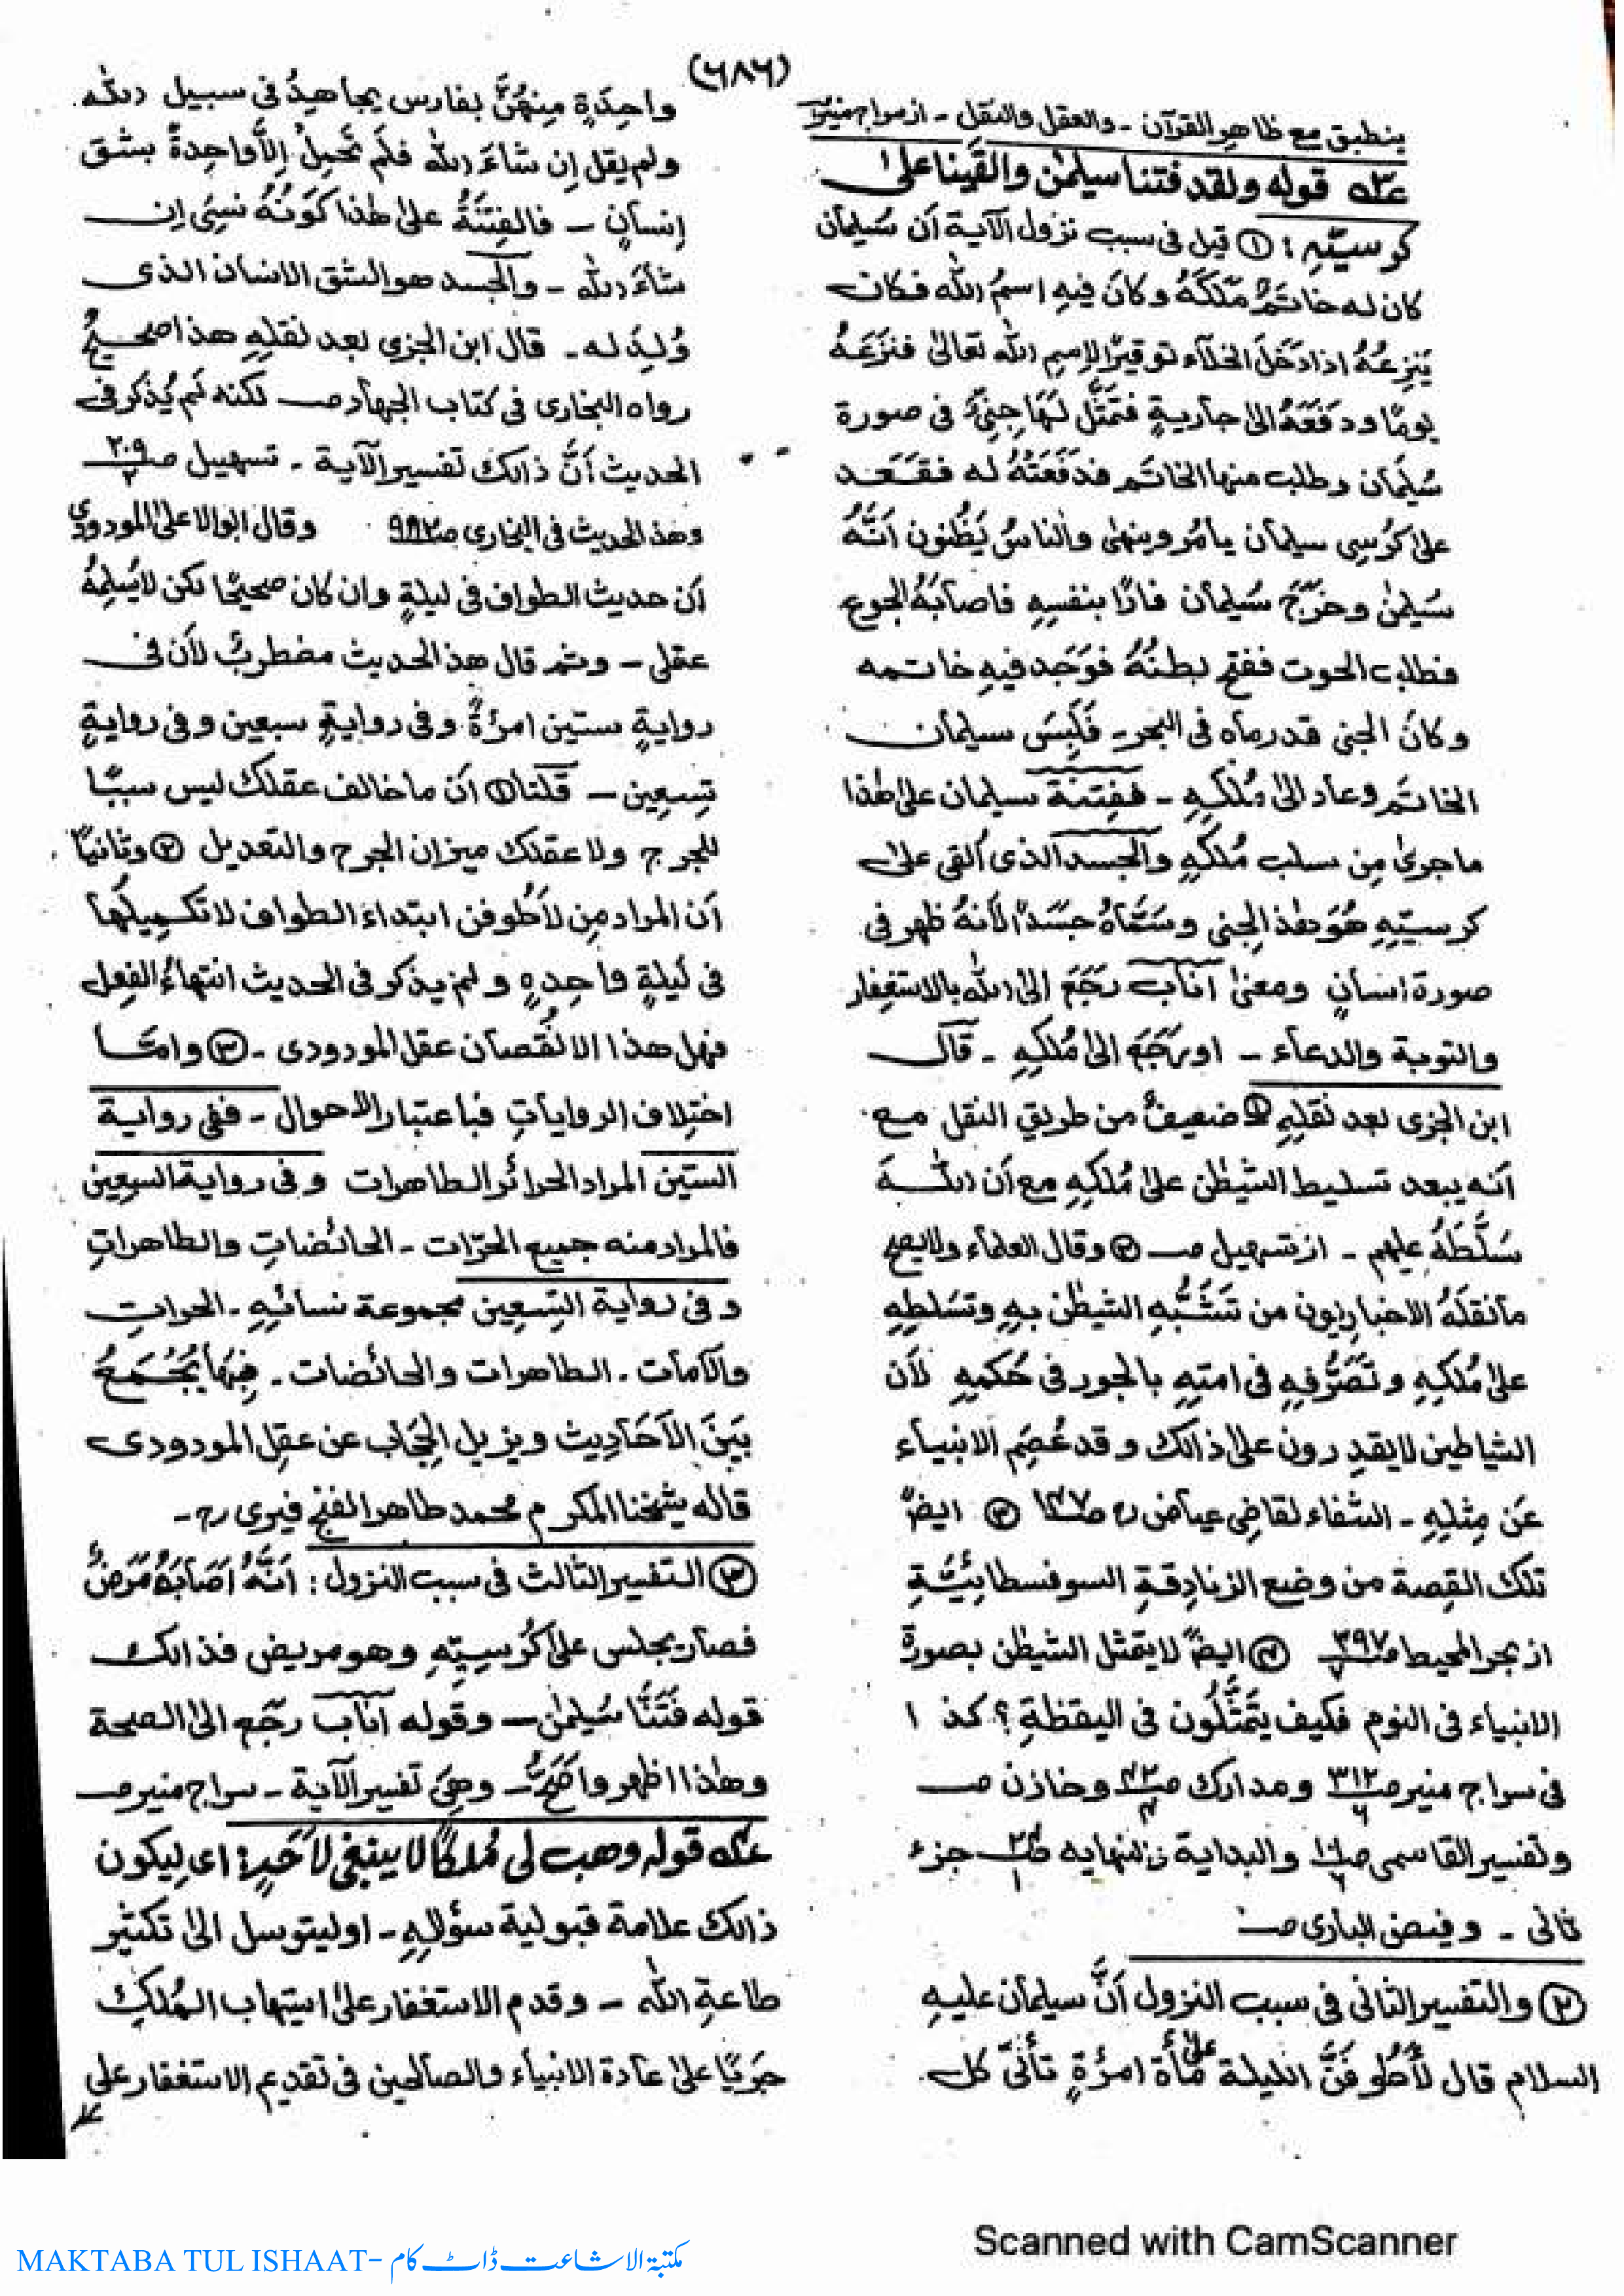 (٦٨٦)
ينطبق مع ظاهر القرآن - والعقل والنقل - از سراج منير
قوله ولقد فتنا سليمٰن والقينا علىٰ
كرسيّهِ : ① قيل فى سبب نزول الآية أن سُليمان
كان له خاتَم مَلَّكَهُ وكانَ فيهِ اسمُ الله فكان
يَنزِعُهُ اذا دَخَلَ الخلآء توقيرًا لإسمِ الله تعالىٰ فنَزَعَهُ
يومًا ودفَعَهُ الىٰ جاريةٍ فتمَثَّل لَهَا جِنِّىٌّ فى صورة
سُليمان وطلب منها الخاتَم فدَفَعَتْهُ له فقَعَد
علىٰ كُرسِى سليمان يأمُر وينهىٰ والناسُ يَظُنون أنَّهُ
سُليمٰن وخَرَجَ سُليمان فارًّا بنفسِهِ فاصابَهُ الجوع
فطلب الحوت ففتح بطنُهُ فوَجَد فيهِ خاتمه
وكانَ الجنى قد رماه فى البحر - فَلَبِسَ سليمان
الخاتَم وعاد الىٰ مُلكِهِ - ففِتنَة سليمان علىٰ هٰذا
ماجرىٰ مِن سلب مُلكهِ والجسد الذى اُلقى علىٰ
كرسيّهِ هُوَ هٰذ الجنى وسَمّاهُ جسَدًا لأنهُ ظهر فى
صورة انسانٍ ومعنىٰ أناب رَجَعَ الى الله بالاستغفار
والتوبة والدعاء - اورَجَعَ الىٰ مُلكِهِ - قال
ابن الجزى بعد نقلِهِ ① ضعيفٌ من طريقِ النقل مع
أنه يبعد تسليط الشيٰطن علىٰ مُلكِهِ مع أن اللهَ
سَلَّطَهُ عليهم - از تسهيل صـ ② وقال العلماء ولا يصح
مانقَلَهُ الاخباريون من تَشَبُّهِ الشيٰطن بهِ وتسَلطِهِ
علىٰ مُلكِهِ وتصَرُّفِهِ فى امتِهِ بالجور فى حُكمِهِ لأن
الشياطين لايقدِرون علىٰ ذالك وقد عُصِمَ الانبياء
عَن مِثلِهِ - الشفاء لقاضى عياض رح ③ ايضً
تلك القِصة من وضع الزنادِقةِ السوفسطائيَّةِ
از بحر المحيط صـ٣٩٧/٧ ④ ايضً لايتمثل الشيٰطن بصورة
الانبياء فى النوم فكيف يتمَثَّلُون فى اليقظةِ؟ كذ ا
فى سراج منير صـ٣١٢/٦ ومدارك صـ٤٢/٤ وخازن صـ
وتفسير القاسمى والبداية ونهايه جزء
ثانى - وفيض البارى صـ
② والتفسير الثانى فى سبب النزول أنَّ سيلمان عليه
السلام قال لأطُوفَنَّ الليلة علىٰ مأة امرُةٍ تأتى كل
واحِدَةٍ مِنهُنَّ بفارس يجاهِدُ فى سبيل الله
ولم يقل إن شاءَ الله فلَم تَحمِل إلاَّ واحِدةً بشق
إنسانٍ - فالفِتنَةُ علىٰ هٰذا كَونُهُ نسِىَ ان
شاءَ الله - والجسد هو الشق الانسان الذى
وُلِدَ له - قال ابن الجزى بعد نقلِهِ هذا صحيحٌ
رواه البخارى فى كتاب الجهاد صـ لكنه لَم يُذكر فى
الحديث أنَّ ذالك تفسير الآية - تسهيل صـ٢٠٩
وهذ الحديث فى البخارى صـ وقال ابوالاعلىٰ المودودى
أن حديث الطواف فى ليلةٍ وان كان صحيحًا لكن لايُسلِمُهُ
عقلى - وثم قال هذ الحديث مضطربٌ لأن فى
روايةٍ ستين امرُةً وفى روايةٍ سبعين وفى روايةٍ
تِسعِين - قلنا ① أن ماخالف عقلك ليس سببًا
للجرح ولا عقلك ميزان الجرح والتعديل ② وثانيًا
أن المراد مِن لأطُوفن ابتداء الطواف لاتكميلها
فى لَيلةٍ واحِدةٍ ولم يذكر فى الحديث انتهاءُ الفِعل
فهل هذا الانُقصان عقل المودودى - ③ وامّا
اختِلاف الرواياتِ فباعتبار الاحوال - ففى رواية
الستين المراد الحرائر الطاهرات وفى رواية السبعين
فالمراد منه جميع الحرّات - الحائضاتِ والطاهراتِ
وفى رواية التِسعِين مجموعة نسائهِ - الحراتِ
والآمات - الطاهرات والحائضات - فبِهَا يُجْمَعُ
بَينَ الأحَاديث ويزيل الحِجَاب عن عقل المودودى
قاله شيخنا المكرم محمد طاهر الفنج فيرى رح -
③ التفسير الثالث فى سبب النزول : أنَّهُ أصَابَهُ مَرَضٌ
فصار يجلس علىٰ كُرسِيّهِ وهو مريض فذالك
قوله فتنَّا سُيلمٰن - وقوله أناب رجَع الىٰ الصحة
وهٰذا اظهر واصَحُّ - وهِىَ تفسير الآية - سراج منير صـ
قوله وهب لى مُلكًا لا ينبغى لأحَدٍ : اى لِيكون
ذالك علامة قبولية سؤالهِ - اوليتوسل الىٰ تكثير
طاعةِ الله - وقدم الاستغفار علىٰ استِهاب المُلكِ
جَريًا علىٰ عادة الانبياء والصالحين فى تقديم الاستغفار على
Scanned with CamScanner
MAKTABA TUL ISHAAT- مکتبۃ الاشاعت ڈاٹ کام